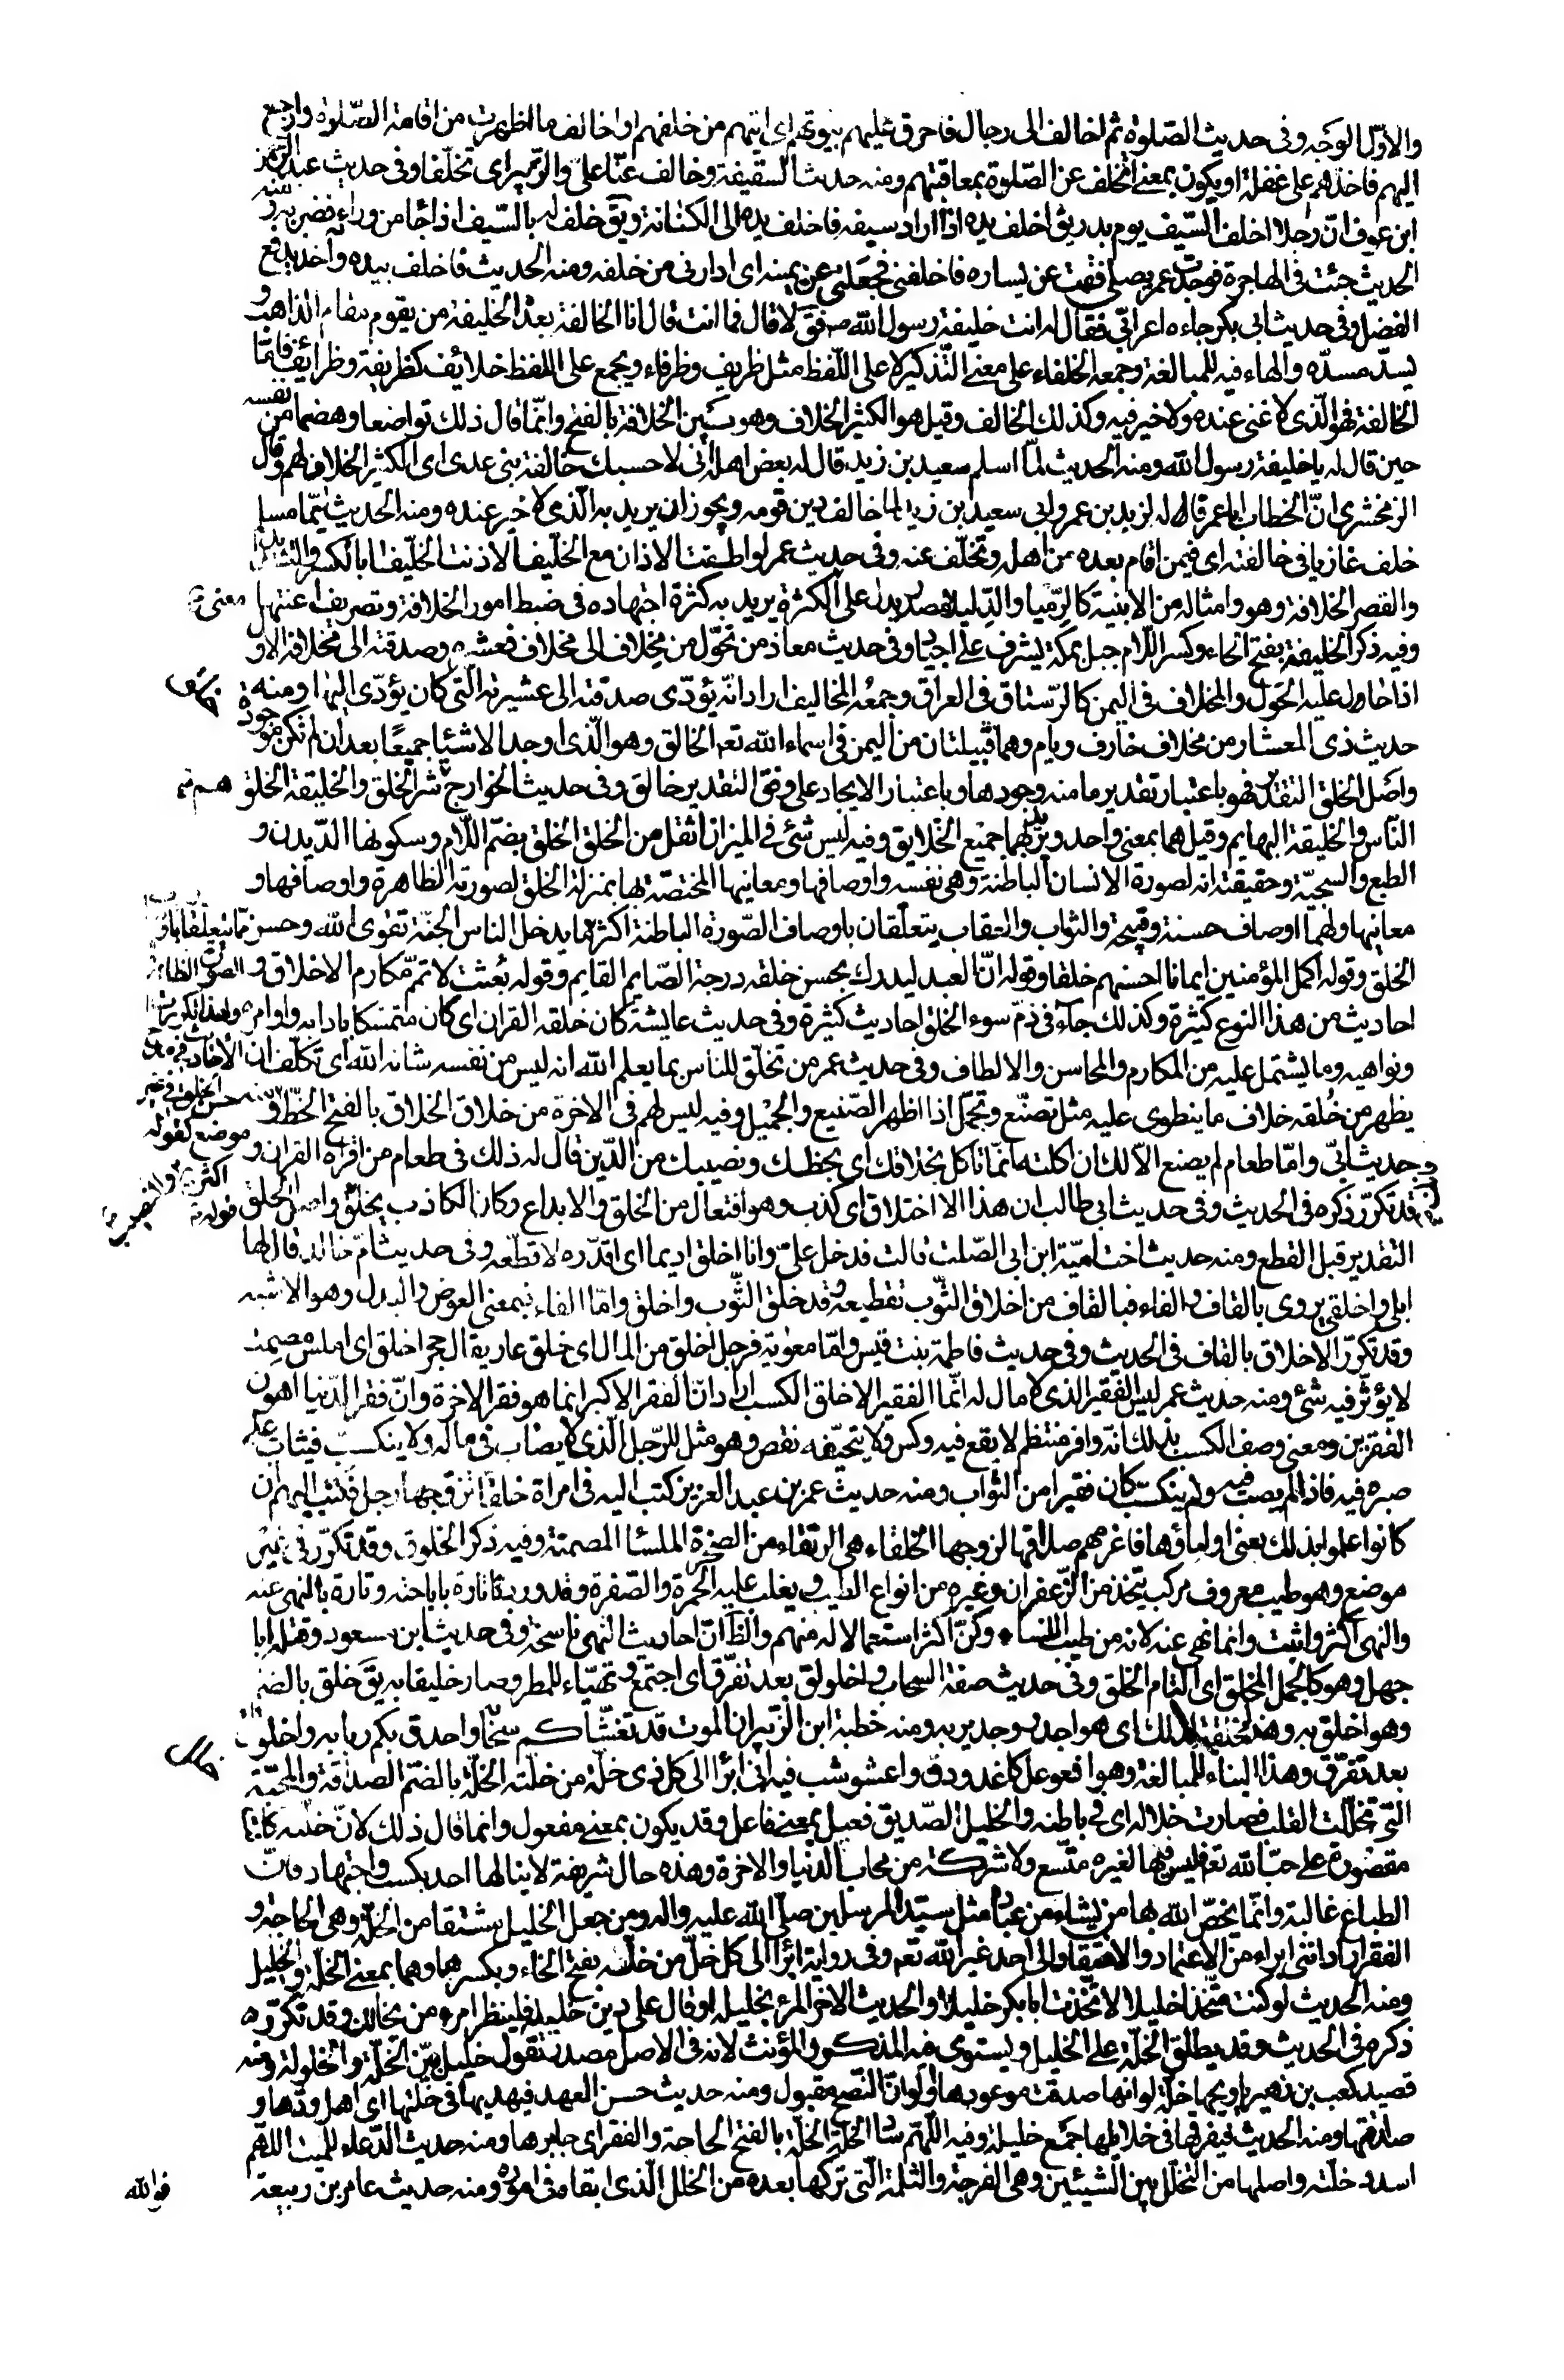 والاوّل الوَجه وفى حديث الصّلوة ثم اخالف الى رجال فاحرق عليهم بيوتهم اى اتيهم من خلفهم او اخالف ما اظهرت من اقامة الصّلوة وارجع
اليهم فاخذهم على غفلة او يكون بمعنى اتخلف عن الصّلوة بمعاقبتهم ومنه حديث السقيفة وخالف عنّا علىّ والزّبير اى تخلّفا وفى حديث عبد الرحمن
ابن عوف انّ رجلا اخلف السّيف يوم بدر يق اخلف يده اذا اراد سيفه فاخلف يده الى الكنانة ويق خلف له بالسّيف اذا جا من ورائه فضربه ومنه
الحديث جئت فى الهاجرة فوجدت عمر يصلى فقمت عن يساره فاخلفنى فجعلنى عن يمينه اى ادارنى من خلفه ومنه الحديث فاخلف بيده واخذ يدفع
الفضل وفى حديث ابى بكر جاءه اعرابّى فقال له انت خليفة رسول الله ص فق لا قال فما انت قال انا الخالفة بعده الخليفة من يقوم مقام الذاهب و
يسدّ مسدّه والهاء فيه للمبالغة وجمعه الخلفاء على معنى التّذكير لا على اللّفظ مثل ظريف وظرفاء ويجمع على اللفظ خلائف كظريفة وظرائف فامّا
الخالفة فهو الّذى لا غنى عنده ولا خير فيه وكذلك الخالف وقيل هو الكثير الخلاف وهو بيّن الخلافة بالفتح وانّما قال ذلك تواضعا وهضما من نفسه
حين قال له يا خليفة رسول الله ومنه الحديث لمّا اسلم سعيد بن زيد قال له بعض اهله انى لاحسبك خالفة بنى عدى اى الكثير الخلاف لهم وقال
الزمخشرى انّ الخطاب ابا عمر قاله لزيد بن عمرو ابى سعيد بن زيد لما خالف دين قومه ويجوز ان يريد به الّذى لا خير عنده ومنه الحديث ايّما مسلم
خلف غازيا فى خالفته اى فيمن اقام بعده من اهله وتخلّف عنه وفى حديث عمر لو اطقت الاذان مع الخلّيفا لاذنت الخلّيفا بالكسر والتّشديد
والقصر الخلافة وهو وامثاله من الابنية كالرمّيا والدّليلا مصدر يدل على الكثرة يريد به كثرة اجتهاده فى ضبط امور الخلافة وتصريف اعنتها
معنى
وفيه ذكر الخليفة بفتح الخاء وكسر اللّام جبل بمكة يشرف على اجياد وفى حديث معاذ من تحوّل من مخلاف الى مخلاف فعشره وصدقته الى مخلافه الاول
اذا حال عليه الحول والمخلاف فى اليمن كالرّستاق فى العراق وجمعه المخاليف اراد انّه يؤدّى صدقته الى عشيرته الّتى كان يؤدّى اليها ومنه
حديث ذى المعشار من مخلاف خارف ويام وهما قبيلتان من اليمن فى اسماء الله تعه الخالق وهو الّذى اوجد الاشيا جميعًا بعد ان لم تكن موجودة
واصل الخلق التقدير فهو باعتبار تقدير ما منه وجودها وباعتبار الايجاد على وفق التقدير خالق وفى حديث الخوارج شر الخلق والخليقة الخلق
هم
النّاس والخليقة البهايم وقيل هما بمعنى واحد ويريد بهما جميع الخلايق وفيه ليس شئ فى الميزان اثقل من الخلق الخلق بضمّ اللّام وسكونها الدّين و
الطبع والسجيّة وحقيقته انه لصورة الانسان الباطنة وهى نفسه واوصافها ومعانيها المختصّة بها بمنزلة الخلق لصورته الظاهرة واوصافها و
معانيها ولهما اوصاف حسنة وقبيحة والثواب والعقاب يتعلّقان باوصاف الصّورة الباطنة اكثر ممّا يتعلقان باوصاف الصورة الظاهرة
ولهذا تكررت الاحاديث فى مدح حسن الخلق فى غير موضع كقوله اكثر ما يدخل الناس الجنّة تقوى الله وحسن
الخلق وقوله اكمل المؤمنين ايمانا احسنهم خلقا وقوله انّ العبد ليدرك بحسن خلقه درجة الصّايم القايم وقوله بُعثت لاتمّم مكارم الاخلاق و
احاديث من هذا النوع كثيرة وكذلك جاء فى ذمّ سوء الخلق احاديث كثيرة وفى حديث عايشة كان خلقه القران اى كان متمسّكا بادابه واوامره
ونواهيه وما يشتمل عليه من المكارم والمحاسن والالطاف وفى حديث عمر من تخلّق للناس بما يعلم الله انه ليس من نفسه شانه الله اى تكلّف ان
يظهر من خُلقه خلاف ما ينطوى عليه مثل تصنّع وتجمّل اذا اظهر الصّنيع والجميل وفيه ليس لهم فى الاخرة من خلاق الخلاق بالفتح الحظّ و
فى حديث ابىّ وامّا طعام لم يصنع الا لك ان اكلته انّما تاكل بخلاقك اى بحظك ونصيبك من الدّين قال له ذلك فى طعام من اقراه القران و
قد تكرّر ذكره فى الحديث وفى حديث ابى طالب ان هذا الا اختلاق اى كذب وهو افتعال من الخلق والابداع وكان الكاذب يخلق قوله واصل الخلق
التقدير قبل القطع ومنه حديث اخت اميّة ابن ابى الصّلت قالت فدخل علىّ وانا اخلق اديما اى اقدّره لاقطّعه وفى حديث امّ خالد قال لها
ابلى واخلقى يروى بالقاف والفاء فبالقاف من اخلاق الثّوب تقطيعه وقد خلق الثّوب واخلق وامّا الفاء فبمعنى العوض والبدل وهو الاشبه
وقد تكرّر الاخلاق بالقاف فى الحديث وفى حديث فاطمة بنت قيس وامّا معوية فرجل اخلق من المال اى خلق عار يق الحجر اخلق اى املس مصمت
لا يؤثّر فيه شئ ومنه حديث عمر ليس الفقير الذى لا مال له انّما الفقير الاخلق الكسب اراد انّ الفقر الاكبر انما هو فقر الاخرة وانّ فقر الدّنيا اهون
الفقرين ومعنى وصف الكسب بذلك انّه وافر منتظم لا يقع فيه وكس ولا يتحيّفه نقص وهو مثل للرّجل الّذى لا يصاب فى ماله ولا ينكب فيثاب على
صبره فيه فاذا لم يصب فيه ولم ينكب كان فقيرا من الثواب ومنه حديث عمر بن عبد العزيز كتب اليه فى امراة خلقاء تزوجها رجل فكتب اليه ان
كانوا علموا بذلك يعنى اولياؤها فاغرمهم صداقها لزوجها الخلقاء هى الرتقاء من الصّخرة الملسا المصمتة وفيه ذكر الخلوق وقد تكرّر فى غير
موضع وهو طيب معروف مركب يتخذ من الزّعفران وغيره من انواع الطيب ويغلب عليه الحمرة والصّفرة وقد ورد تارة باباحته وتارة بالنهى عنه
والنهى اكثر واثبت وانما نهى عنه لانه من طيب النساء وكنّ اكثر استعمالا له منهم والظّ انّ احاديث النهى ناسخة وفى حديث ابن مسعود وقتله ابا
جهل وهو كالجمل المخلق اى التام الخلق وفى حديث صفة السحاب واخلولق بعد تفرّق اى اجتمع وتهيّاء للمطر وصار خليقا به يق خلق بالضم
وهو اخلق به وهذا مخلقة لذلك اى هو اجدر وجدير به ومنه خطبة ابن الزّبير ان الموت قد تغشّاكم سحّابه واحدق بكم ربابه واخلولق
بعد تفرّق وهذا البناء للمبالغة وهو افعوعل كاغدودق واعشوشب فيه انى ابرأ الى كل ذى خلّة من خلّته الخلّة بالضمّ الصداقة والمحبّة
التّى تخللت القلب فصارت خلاله اى فى باطنه والخليل الصّديق فعيل بمعنى فاعل وقد يكون بمعنى مفعول وانما قال ذلك لانّ خلّته كانت
مقصورة على حبّ الله تعه فليس فيها لغيره متّسع ولا شركة من محاب الدنيا والاخرة وهذه حال شريفة لا ينالها احد بكسب واجتهاد فانّ
الطباع غالبة وانّما يخصّ الله بها من يشاء من عباده مثل سيّد المرسلين صلّى الله عليه واله ومن جعل الخليل مشتقا من الخلّة وهى الحاجة و
الفقر اراد انّنى ابراء من الاعتماد والافتقار الى احد غير الله تعه وفى رواية ابرأ الى كل خلّ من خلّته بفتح الخاء وبكسرهما وهما بمعنى الخلّة والخليل
ومنه الحديث لو كنت متّخذا خليلا لاتّخذت ابا بكر خليلا والحديث الاخر المرء بخليله او قال على دين خليله فلينظر امرء من يخالل وقد تكرّر
ذكره فى الحديث وقد يطلق الخلّة على الخليل ويستوى فيه المذكر والمؤنث لانه فى الاصل مصدر تقول خليل بيّن الخلّة والخلولة ومنه
قصيد كعب بن زهير يا ويحها خلّة لو انها صدقت موعودها او لو انّ النّصح مقبول ومنه حديث حسن العهد فيهديها فى خلّتها اى اهل ودّها و
صداقتها ومنه الحديث فيفرقها فى خلايلها جمع خليلة وفيه اللّهمّ سادّ الخلّة الخلّة بالفتح الحاجة والفقر اى جابرها ومنه حديث الدّعاء للميت اللهمّ
اسدد خلّته واصلها من التخلّل بين الشيئين وهى الفرجة والثلمة الّتى تركها بعده من الخلل الّذى ابقاه فى اموره ومنه حديث عامر بن ربيعة
فوالله